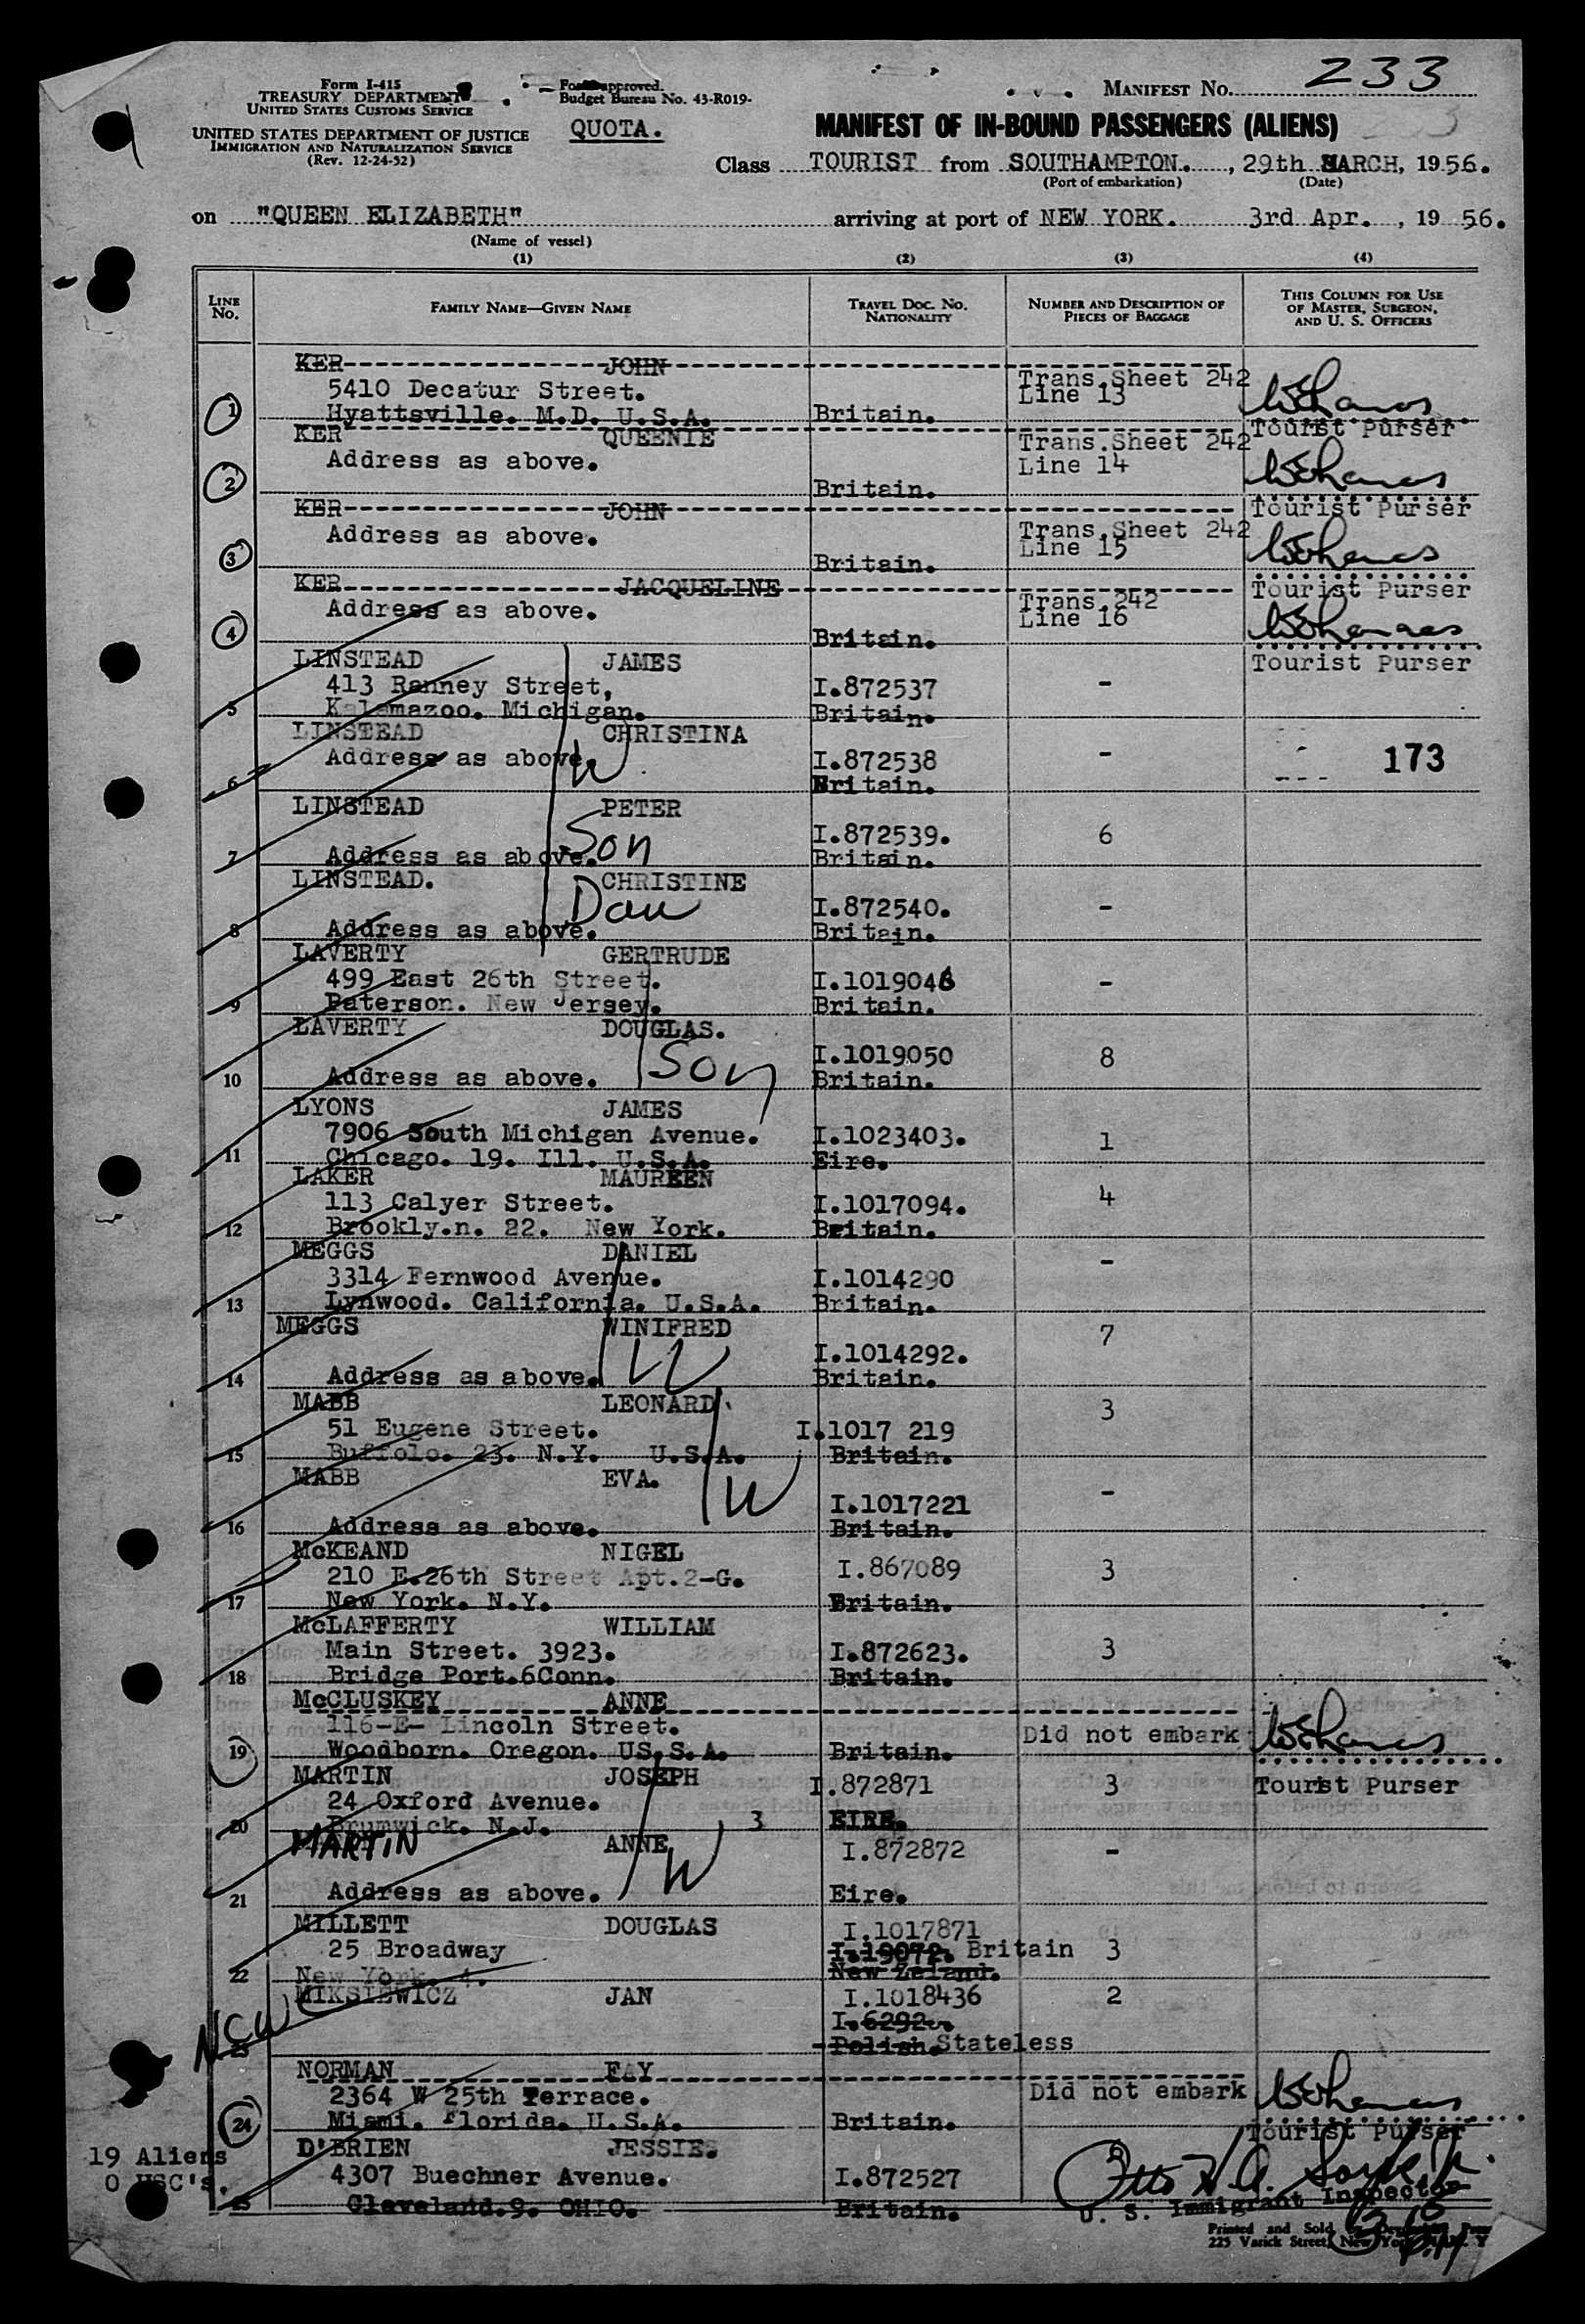 Form I-415
TREASURY DEPARTMENT
UNITED STATES CUSTOMS SERVICE
UNITED STATES DEPARTMENT OF JUSTICE
IMMIGRATION AND NATURALIZATION SERVICE
(Rev. 12-24-52)
Form approved.
Budget Bureau No. 43-R019-
QUOTA.
MANIFEST No. 233
MANIFEST OF IN-BOUND PASSENGERS (ALIENS)
Class TOURIST from SOUTHAMPTON. , 29th MARCH, 1956.
(Port of embarkation) (Date)
on "QUEEN ELIZABETH" arriving at port of NEW YORK. 3rd Apr. , 19 56.
(Name of vessel)
(1) (2) (3) (4)
LINE No. FAMILY NAME—GIVEN NAME TRAVEL DOC. No. NATIONALITY NUMBER AND DESCRIPTION OF PIECES OF BAGGAGE THIS COLUMN FOR USE OF MASTER, SURGEON, AND U. S. OFFICERS
KER JOHN
5410 Decatur Street. Trans.Sheet 242
Line 13
1 Hyattsville. M.D. U.S.A. Britain.
Tourist Purser
KER QUEENIE Trans.Sheet 242
Address as above. Line 14
2 Britain.
Tourist Purser
KER JOHN
Address as above. Trans.Sheet 242
Line 15
3 Britain.
Tourist Purser
KER JACQUELINE
Address as above. Trans.242
Line 16
4 Britain.
Tourist Purser
LINSTEAD JAMES
413 Ranney Street, I.872537 -
5 Kalamazoo. Michigan. Britain.
LINSTEAD CHRISTINA
Address as above. W I.872538 - 173
6 Britain.
LINSTEAD PETER
Son I.872539. 6
7 Address as above. Britain.
LINSTEAD. CHRISTINE
Dau I.872540. -
8 Address as above. Britain.
LAVERTY GERTRUDE
499 East 26th Street. I.1019046 -
9 Paterson. New Jersey. Britain.
LAVERTY DOUGLAS.
Son I.1019050 8
10 Address as above. Britain.
LYONS JAMES
7906 South Michigan Avenue. I.1023403. 1
11 Chicago. 19. Ill. U.S.A. Eire.
LAKER MAUREEN
113 Calyer Street. I.1017094. 4
12 Brookly.n. 22. New York. Britain.
MEGGS DANIEL -
3314 Fernwood Avenue. I.1014290
13 Lynwood. California. U.S.A. Britain.
MEGGS WINIFRED 7
W I.1014292.
14 Address as above. Britain.
MABB LEONARD 3
51 Eugene Street. I.1017 219
15 Buffolo. 23. N.Y. U.S.A. Britain.
MABB EVA. -
W I.1017221
16 Address as above. Britain.
McKEAND NIGEL
210 E.26th Street Apt.2-G. I.867089 3
17 New York. N.Y. Britain.
McLAFFERTY WILLIAM
Main Street. 3923. I.872623. 3
18 Bridge Port.6Conn. Britain.
McCLUSKEY ANNE
116-E- Lincoln Street. Did not embark
19 Woodborn. Oregon. US.S.A. Britain.
MARTIN JOSEPH I.872871 3 Tourist Purser
24 Oxford Avenue.
20 Brumwick. N.J. 3 EIRE.
MARTIN ANNE I.872872 -
W
21 Address as above. Eire.
MILLETT DOUGLAS I.1017871
25 Broadway I.19072. Britain 3
22 New York. 4. New Zeland.
MIKSIEWICZ JAN I.1018436 2
NCW I.6292
23 Polish.Stateless
NORMAN FAY
2364 W 25th Terrace. Did not embark
24 Miami. Florida. U.S.A. Britain.
Tourist Purser
19 Aliens O'BRIEN JESSIE.
0 USC's. 4307 Buechner Avenue. I.872527
25 Cleveland.9. OHIO. Britain.
U. S. Immigrant Inspector
Printed and Sold
225 Varick Street, New York